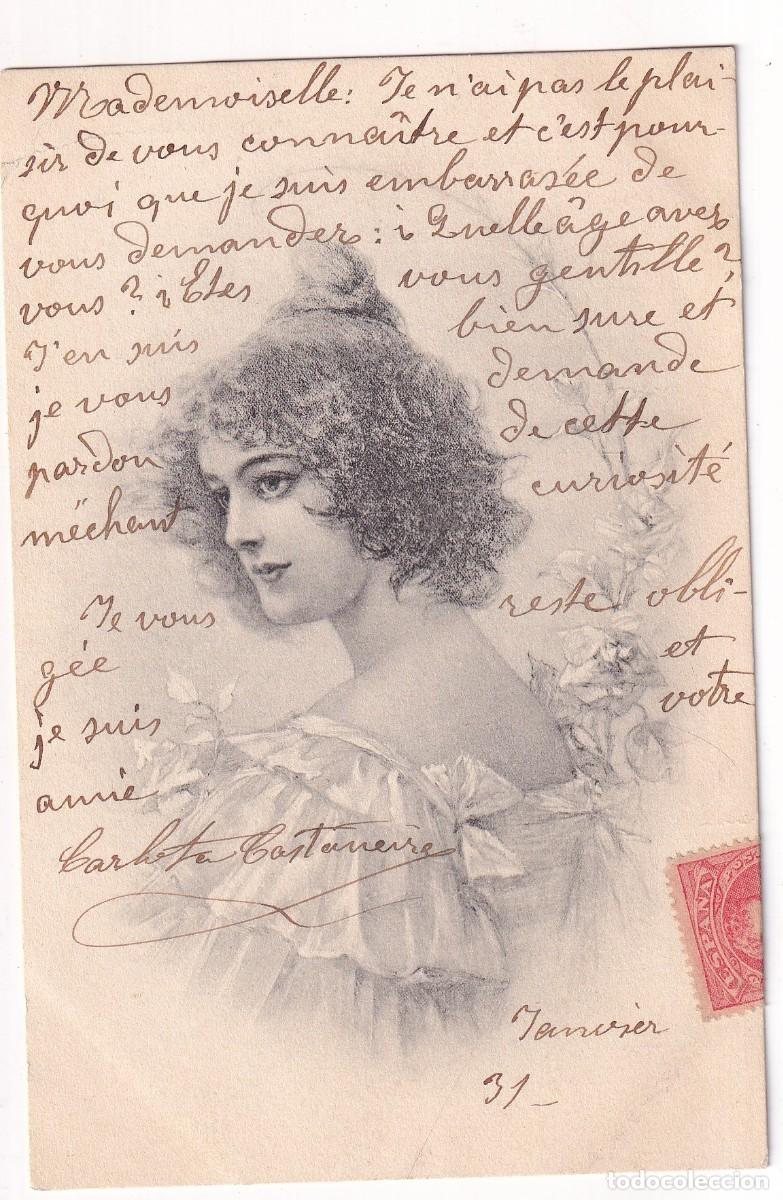 Mademoiselle: Je n'ai pas le plai-
sir de vous connaître et c'est pour-
quoi que je suis embarrasée de
vous demander: ¿Quelle âge avez
vous? ¿Etes vous gentille?
J'en suis bien sure et
je vous demande
pardon de cette
mëchant curiosité
Je vous reste obli-
gée et
je suis votre
amie
Carlota Castaneire
Janvier
31_
ESPAÑA
todocoleccion